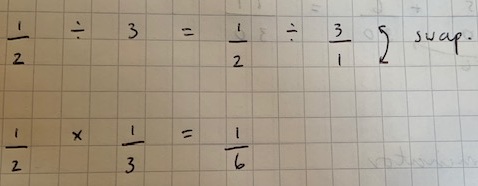 1/2 ÷ 3 = 1/2 ÷ 3/1 swap.
1/2 × 1/3 = 1/6